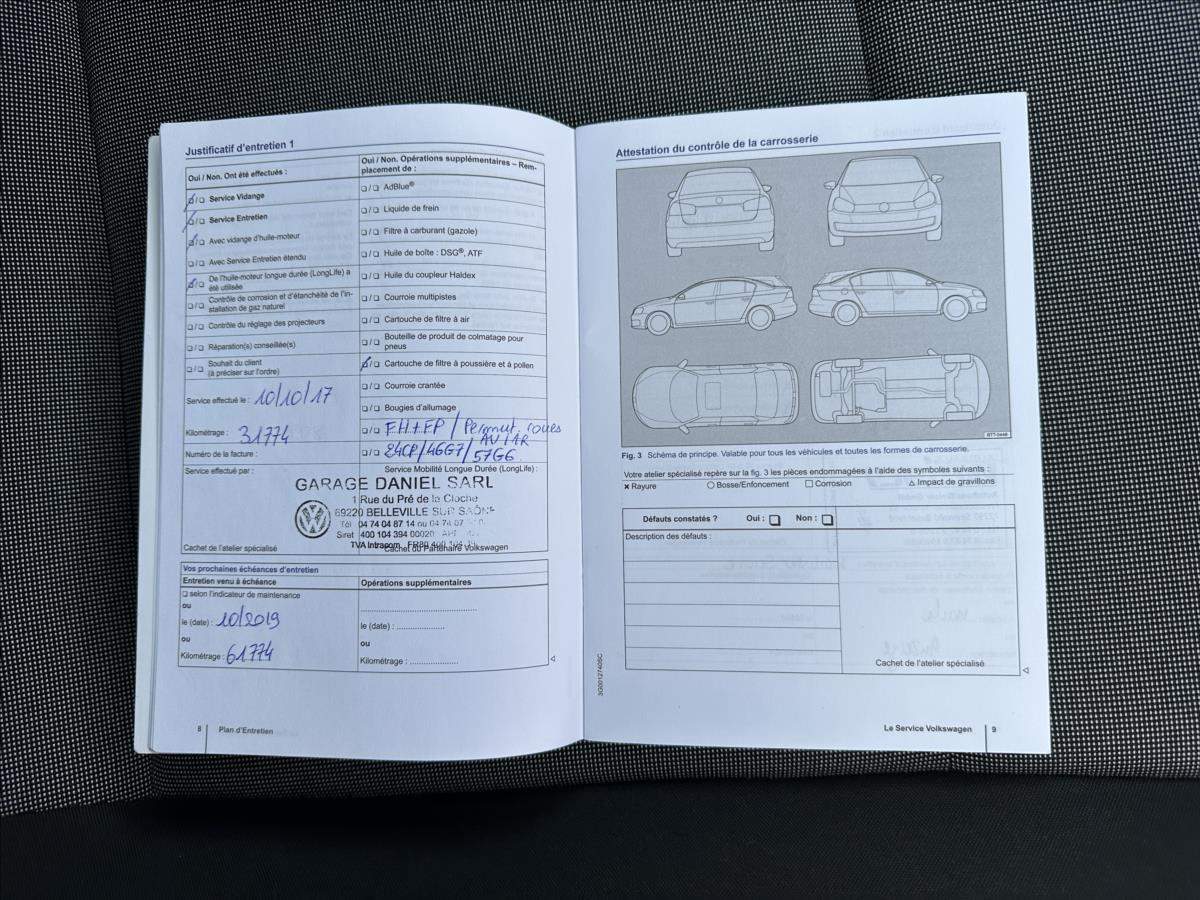 Justificatif d'entretien 1
Oui / Non. Ont été effectués :
❏/❏ Service Vidange
❏/❏ Service Entretien
❏/❏ Avec vidange d'huile-moteur
❏/❏ Avec Service Entretien étendu
❏/❏ De l'huile-moteur longue durée (LongLife) a
été utilisée
❏/❏ Contrôle de corrosion et d'étanchéité de l'in-
stallation de gaz naturel
❏/❏ Contrôle du réglage des projecteurs
❏/❏ Réparation(s) conseillée(s)
❏/❏ Souhait du client
(à préciser sur l'ordre)
Service effectué le : 10/10/17
Kilométrage : 31774
Numéro de la facture :
Oui / Non. Opérations supplémentaires – Rem-
placement de :
❏/❏ AdBlue®
❏/❏ Liquide de frein
❏/❏ Filtre à carburant (gazole)
❏/❏ Huile de boîte : DSG®, ATF
❏/❏ Huile du coupleur Haldex
❏/❏ Courroie multipistes
❏/❏ Cartouche de filtre à air
❏/❏ Bouteille de produit de colmatage pour
pneus
❏/❏ Cartouche de filtre à poussière et à pollen
❏/❏ Courroie crantée
❏/❏ Bougies d'allumage
❏/❏ FH+FP / Permut. roues
AV/AR
❏/❏ 24CP/46G7/57G6
Service effectué par :
Service Mobilité Longue Durée (LongLife) :
GARAGE DANIEL SARL
1 Rue du Pré de la Cloche
69220 BELLEVILLE SUR SAÔNE
Tél 04 74 04 87 14 ou 04 74 07
Siret 400 104 394 00020
TVA Intracom.
Cachet de l'atelier spécialisé
Cachet du Partenaire Volkswagen
Vos prochaines échéances d'entretien
Entretien venu à échéance
❏ selon l'indicateur de maintenance
ou
le (date) : 10/2019
ou
Kilométrage : 61774
Opérations supplémentaires
le (date) :
ou
Kilométrage :
8 Plan d'Entretien
Attestation du contrôle de la carrosserie
BTT-0448
Fig. 3 Schéma de principe. Valable pour tous les véhicules et toutes les formes de carrosserie.
Votre atelier spécialisé repère sur la fig. 3 les pièces endommagées à l'aide des symboles suivants :
× Rayure ○ Bosse/Enfoncement □ Corrosion △ Impact de gravillons
Défauts constatés ? Oui : ❏ Non : ❏
Description des défauts :
Cachet de l'atelier spécialisé
3G0012740SC
Le Service Volkswagen 9